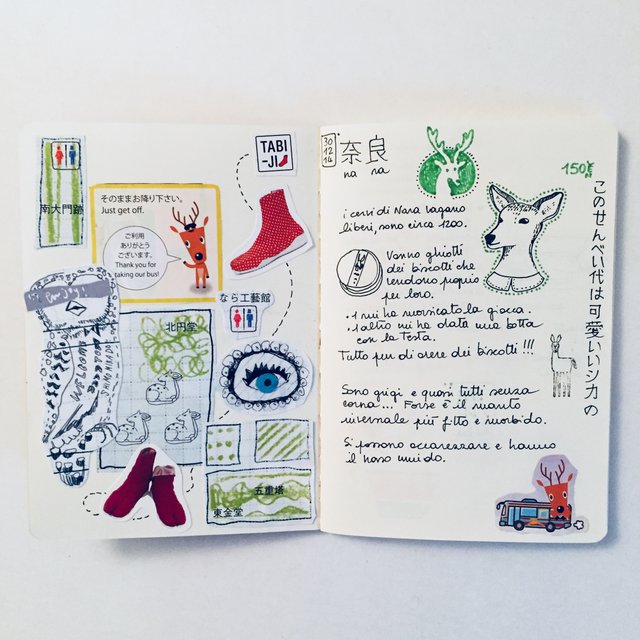 TABI
-JI
南大門跡
そのままお降り下さい。
Just get off.
ご利用
ありがとう
ございます。
Thank you for
taking our bus!
なら工藝館
北円堂
五重塔
東金堂
30
12
14
奈良
na ra
i cervi di Nara vagano
liberi, sono circa 1200.
Vanno ghiotti
dei biscotti che
vendono proprio
per loro.
· 1 mi ha morsicato la giacca.
· 1 altro mi ha dato una botta
con la testa.
Tutto pur di avere dei biscotti !!!
Sono grigi e quasi tutti senza
corna... Forse è il manto
invernale più fitto e morbido.
Si possono accarezzare e hanno
il naso umido.
150
このせんべい代は可愛いいシカの